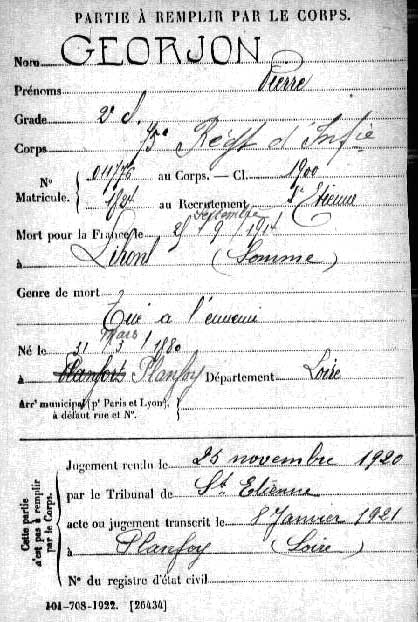 PARTIE À REMPLIR PAR LE CORPS.
Nom GEORJON
Prénoms Pierre
Grade 2e S.
Corps Régt d'Infie
Nº Matricule. { 011776 au Corps. — Cl. 1900
1724 au Recrutement St Etienne
septembre
Mort pour la France le 25/9/1914
à Lihons (Somme)
Genre de mort
Tué à l'ennemi
mars
Né le 31 3 1880
à Planfors Planfoy Département Loire
Arrt municipal (pr Paris et Lyon), à défaut rue et Nº. {
Cette partie n'est pas à remplir par le Corps. {
Jugement rendu le 25 novembre 1920
par le Tribunal de St Etienne
acte ou jugement transcrit le 8 Janvier 1921
à Planfoy (Loire)
Nº du registre d'état civil
101-708-1922. [26434]